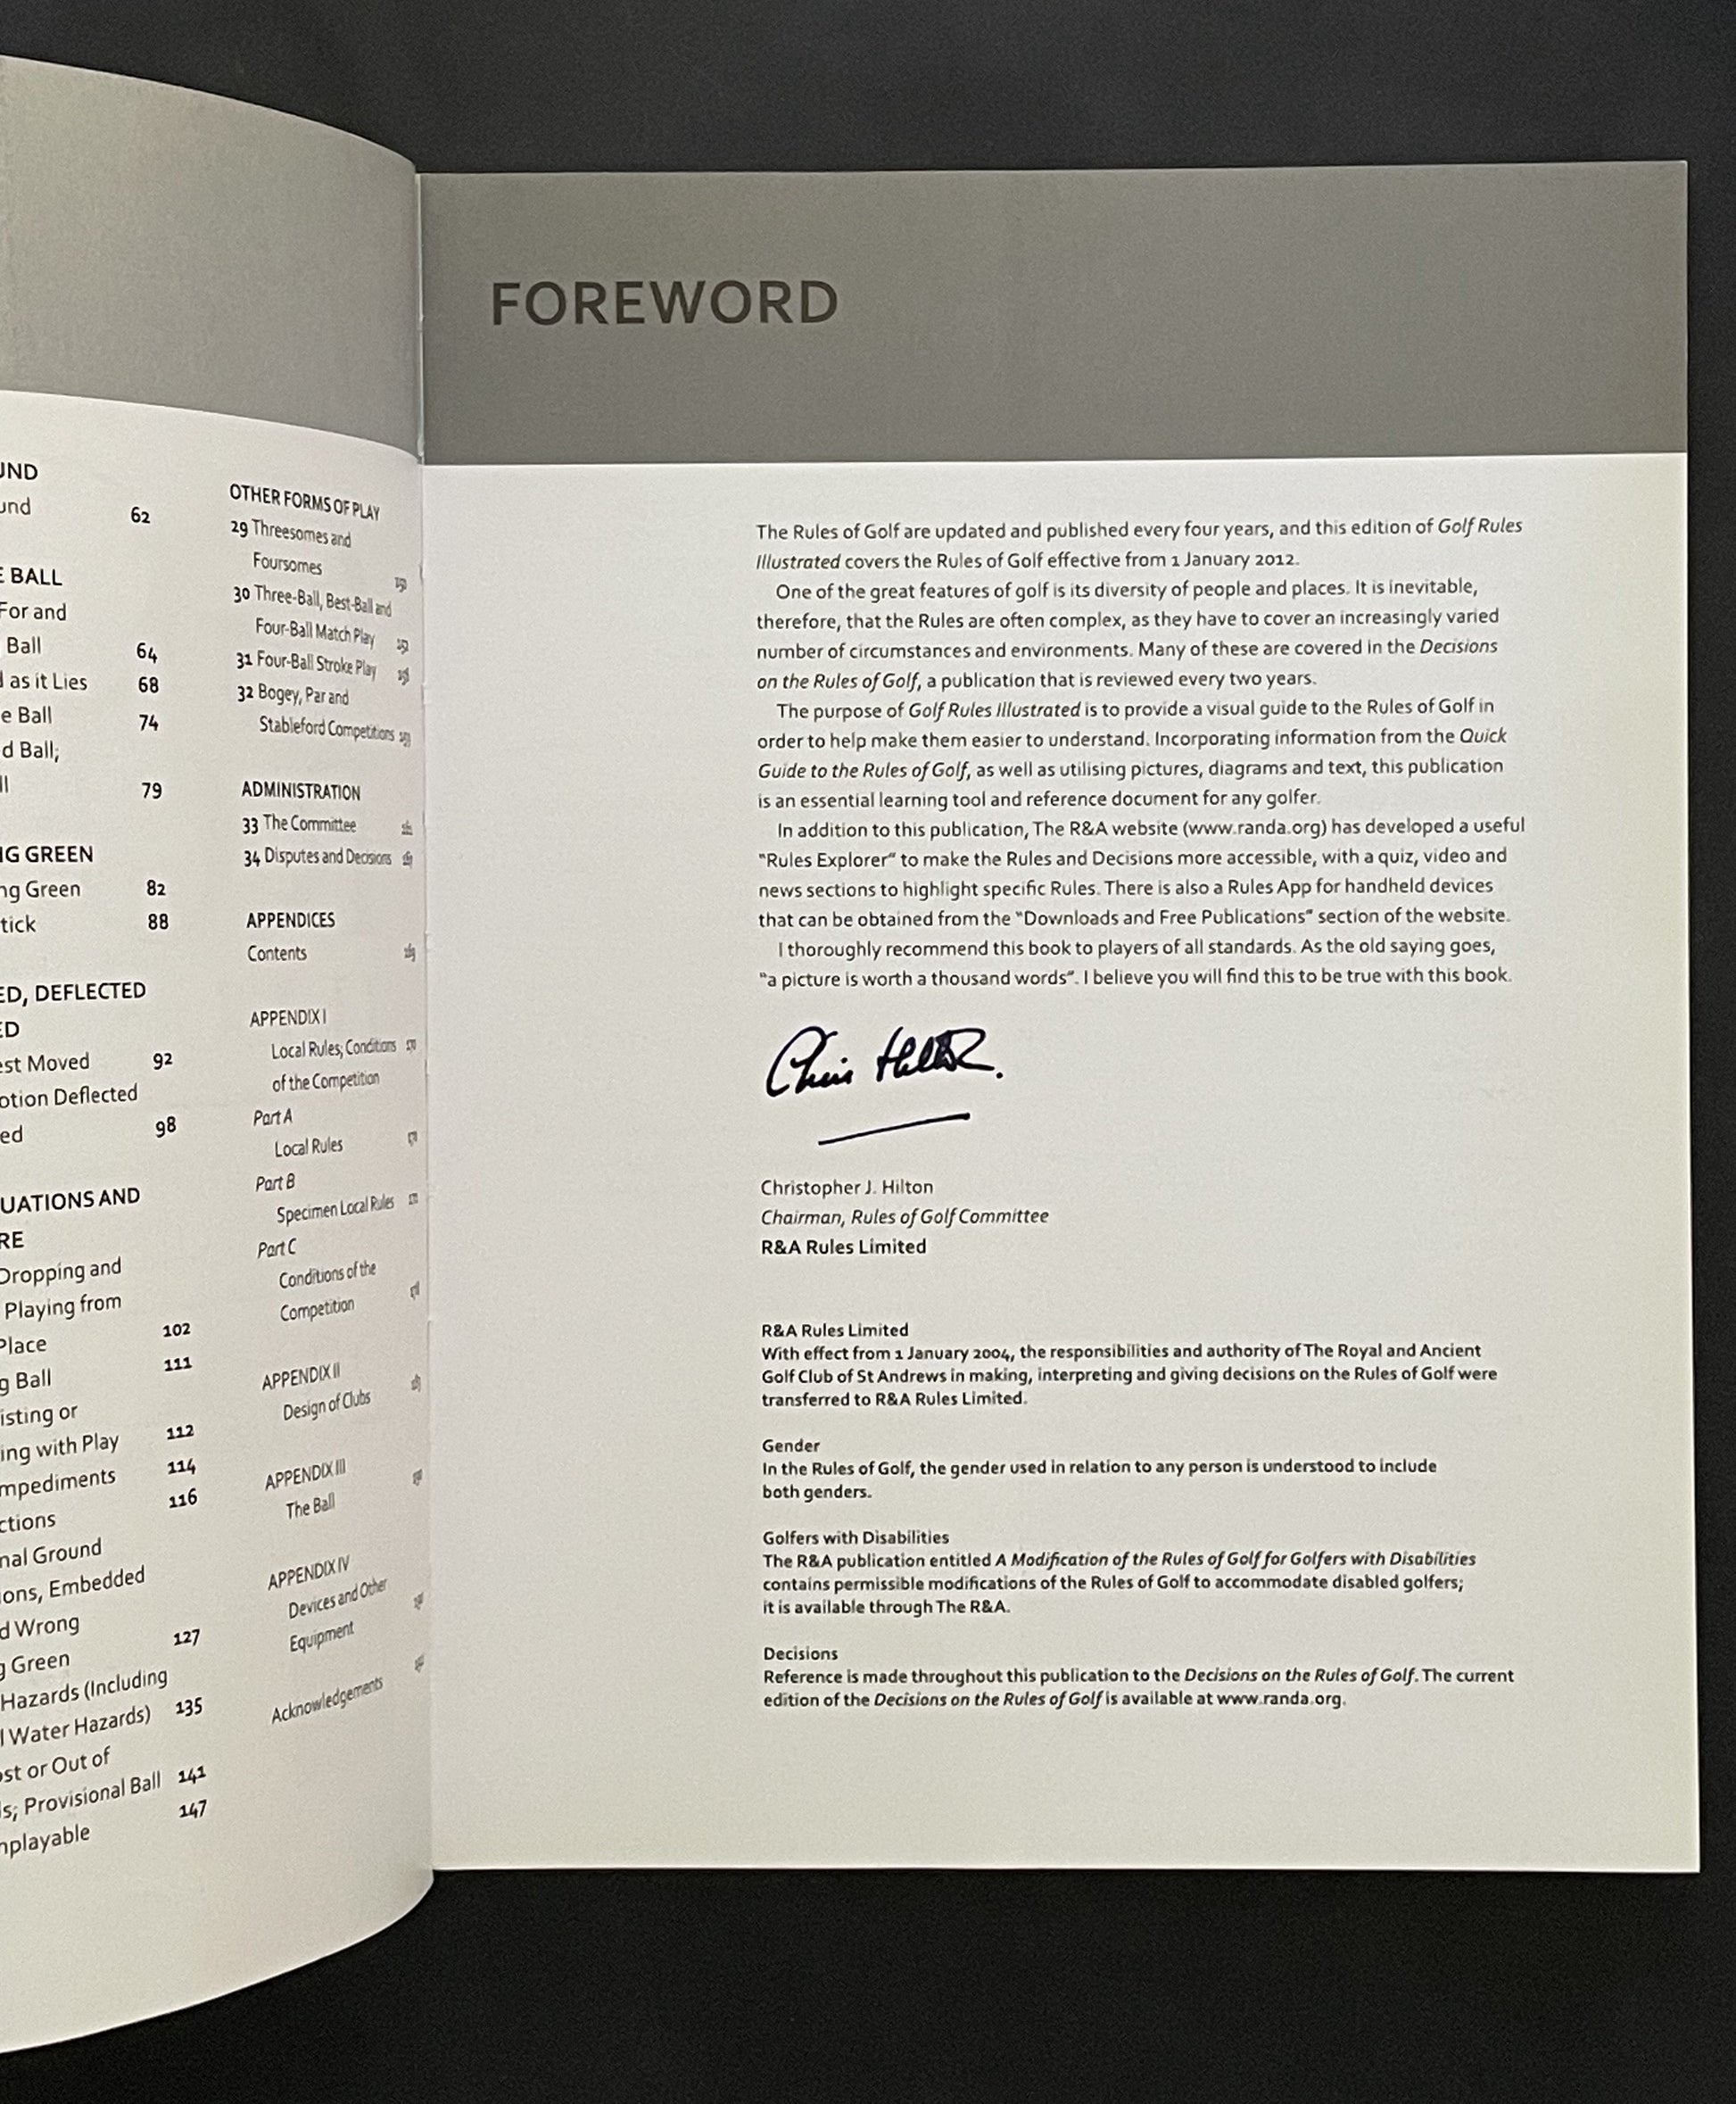 UND
und 62
E BALL
For and
Ball 64
d as it Lies 68
e Ball 74
d Ball;
ll 79
NG GREEN
ng Green 82
tick 88
ED, DEFLECTED
ED
est Moved 92
otion Deflected
ed 98
UATIONS AND
RE
Dropping and
Playing from
Place 102
g Ball 111
isting or
ing with Play 112
mpediments 114
ctions 116
nal Ground
ions, Embedded
d Wrong
g Green 127
Hazards (Including
l Water Hazards) 135
ost or Out of
s; Provisional Ball 141
nplayable 147
OTHER FORMS OF PLAY
29 Threesomes and
Foursomes
30 Three-Ball, Best-Ball and
Four-Ball Match Play
31 Four-Ball Stroke Play
32 Bogey, Par and
Stableford Competitions
ADMINISTRATION
33 The Committee
34 Disputes and Decisions
APPENDICES
Contents
APPENDIX I
Local Rules; Conditions
of the Competition
Part A
Local Rules
Part B
Specimen Local Rules
Part C
Conditions of the
Competition
APPENDIX II
Design of Clubs
APPENDIX III
The Ball
APPENDIX IV
Devices and Other
Equipment
Acknowledgements
FOREWORD
The Rules of Golf are updated and published every four years, and this edition of Golf Rules
Illustrated covers the Rules of Golf effective from 1 January 2012.
One of the great features of golf is its diversity of people and places. It is inevitable,
therefore, that the Rules are often complex, as they have to cover an increasingly varied
number of circumstances and environments. Many of these are covered in the Decisions
on the Rules of Golf, a publication that is reviewed every two years.
The purpose of Golf Rules Illustrated is to provide a visual guide to the Rules of Golf in
order to help make them easier to understand. Incorporating information from the Quick
Guide to the Rules of Golf, as well as utilising pictures, diagrams and text, this publication
is an essential learning tool and reference document for any golfer.
In addition to this publication, The R&A website (www.randa.org) has developed a useful
"Rules Explorer" to make the Rules and Decisions more accessible, with a quiz, video and
news sections to highlight specific Rules. There is also a Rules App for handheld devices
that can be obtained from the "Downloads and Free Publications" section of the website.
I thoroughly recommend this book to players of all standards. As the old saying goes,
"a picture is worth a thousand words". I believe you will find this to be true with this book.
Chris Hilton.
Christopher J. Hilton
Chairman, Rules of Golf Committee
R&A Rules Limited
R&A Rules Limited
With effect from 1 January 2004, the responsibilities and authority of The Royal and Ancient
Golf Club of St Andrews in making, interpreting and giving decisions on the Rules of Golf were
transferred to R&A Rules Limited.
Gender
In the Rules of Golf, the gender used in relation to any person is understood to include
both genders.
Golfers with Disabilities
The R&A publication entitled A Modification of the Rules of Golf for Golfers with Disabilities
contains permissible modifications of the Rules of Golf to accommodate disabled golfers;
it is available through The R&A.
Decisions
Reference is made throughout this publication to the Decisions on the Rules of Golf. The current
edition of the Decisions on the Rules of Golf is available at www.randa.org.